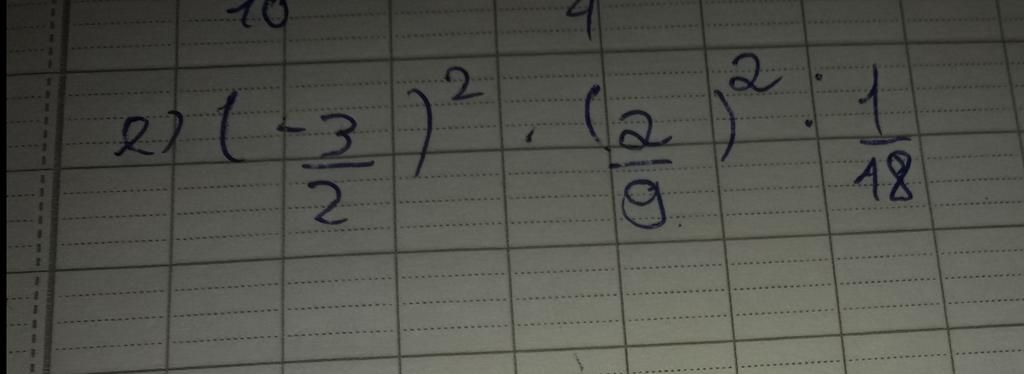 10 4
e) (-3/2)² . (2/9)² : 1/18